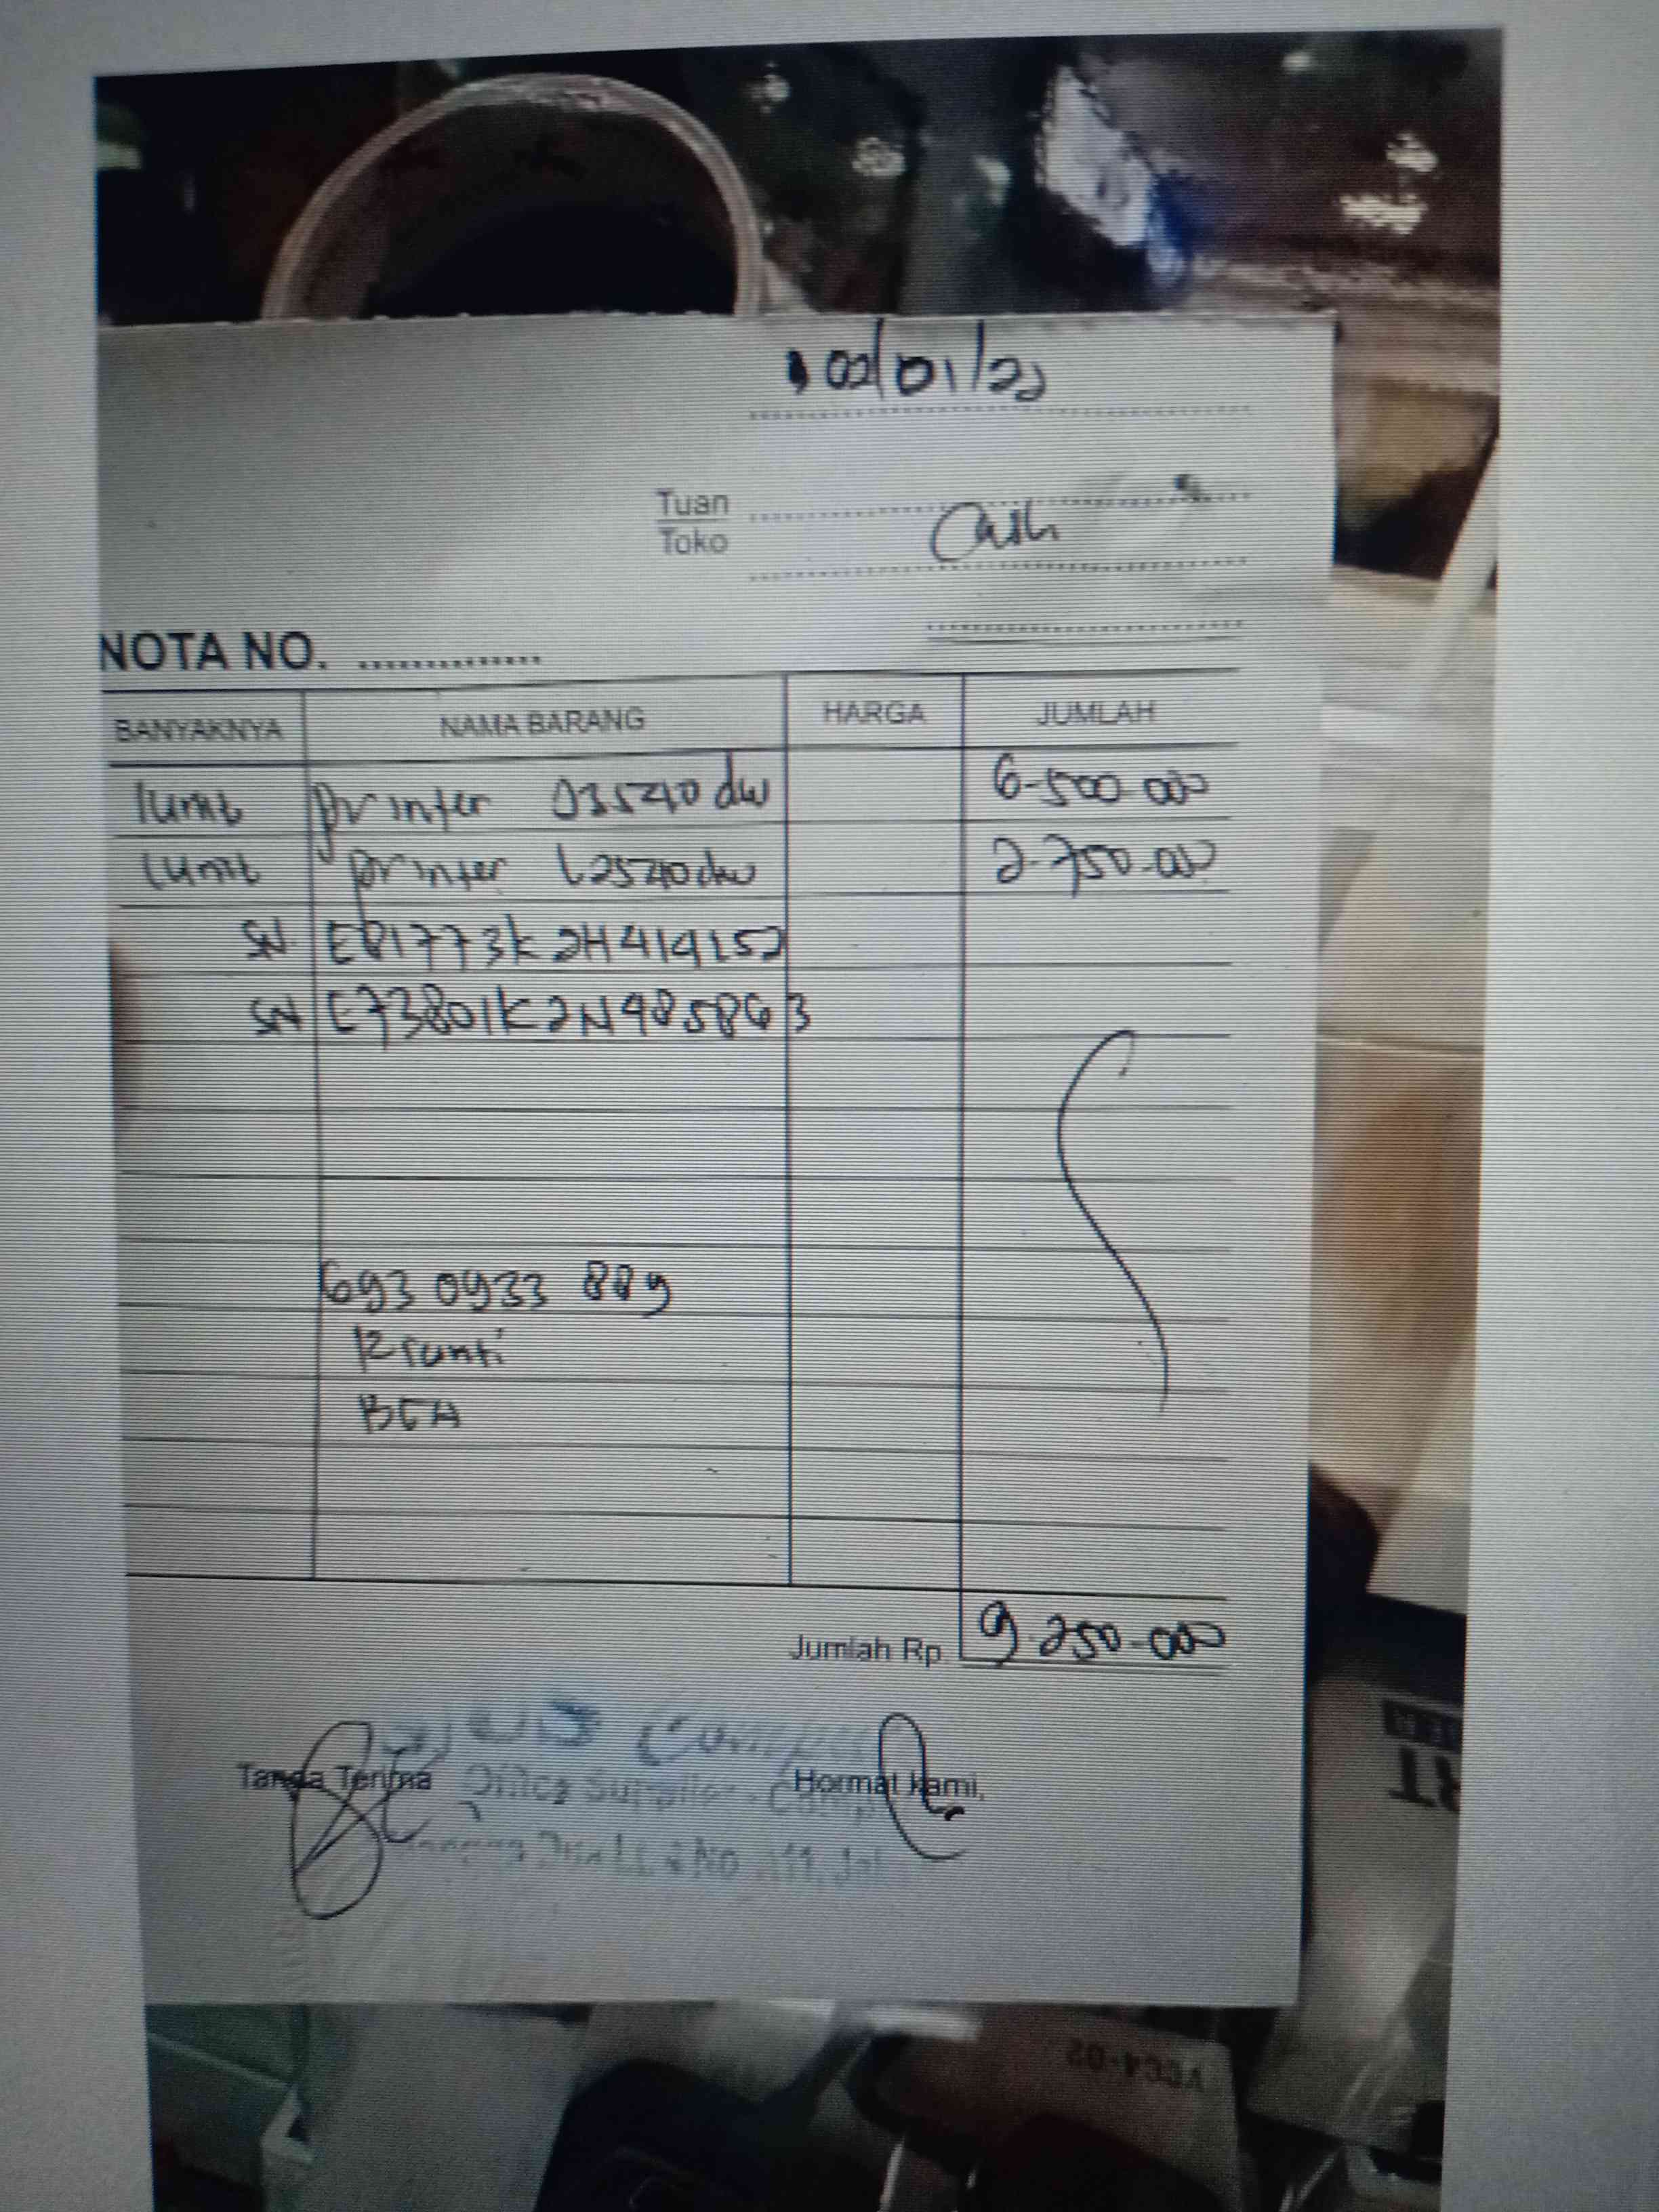 02/01/22
Tuan
Toko
Cash
NOTA NO. ..............
BANYAKNYA NAMA BARANG HARGA JUMLAH
1unit printer J3540dw 6.500.000
1unit printer L2540dw 2.750.000
SN E81773K2H414152
SN E73801K2N985863
693 0933 889
Kranti
BCA
Jumlah Rp. 9.250.000
Tanda Terima Hormat kami,
Office Supplies